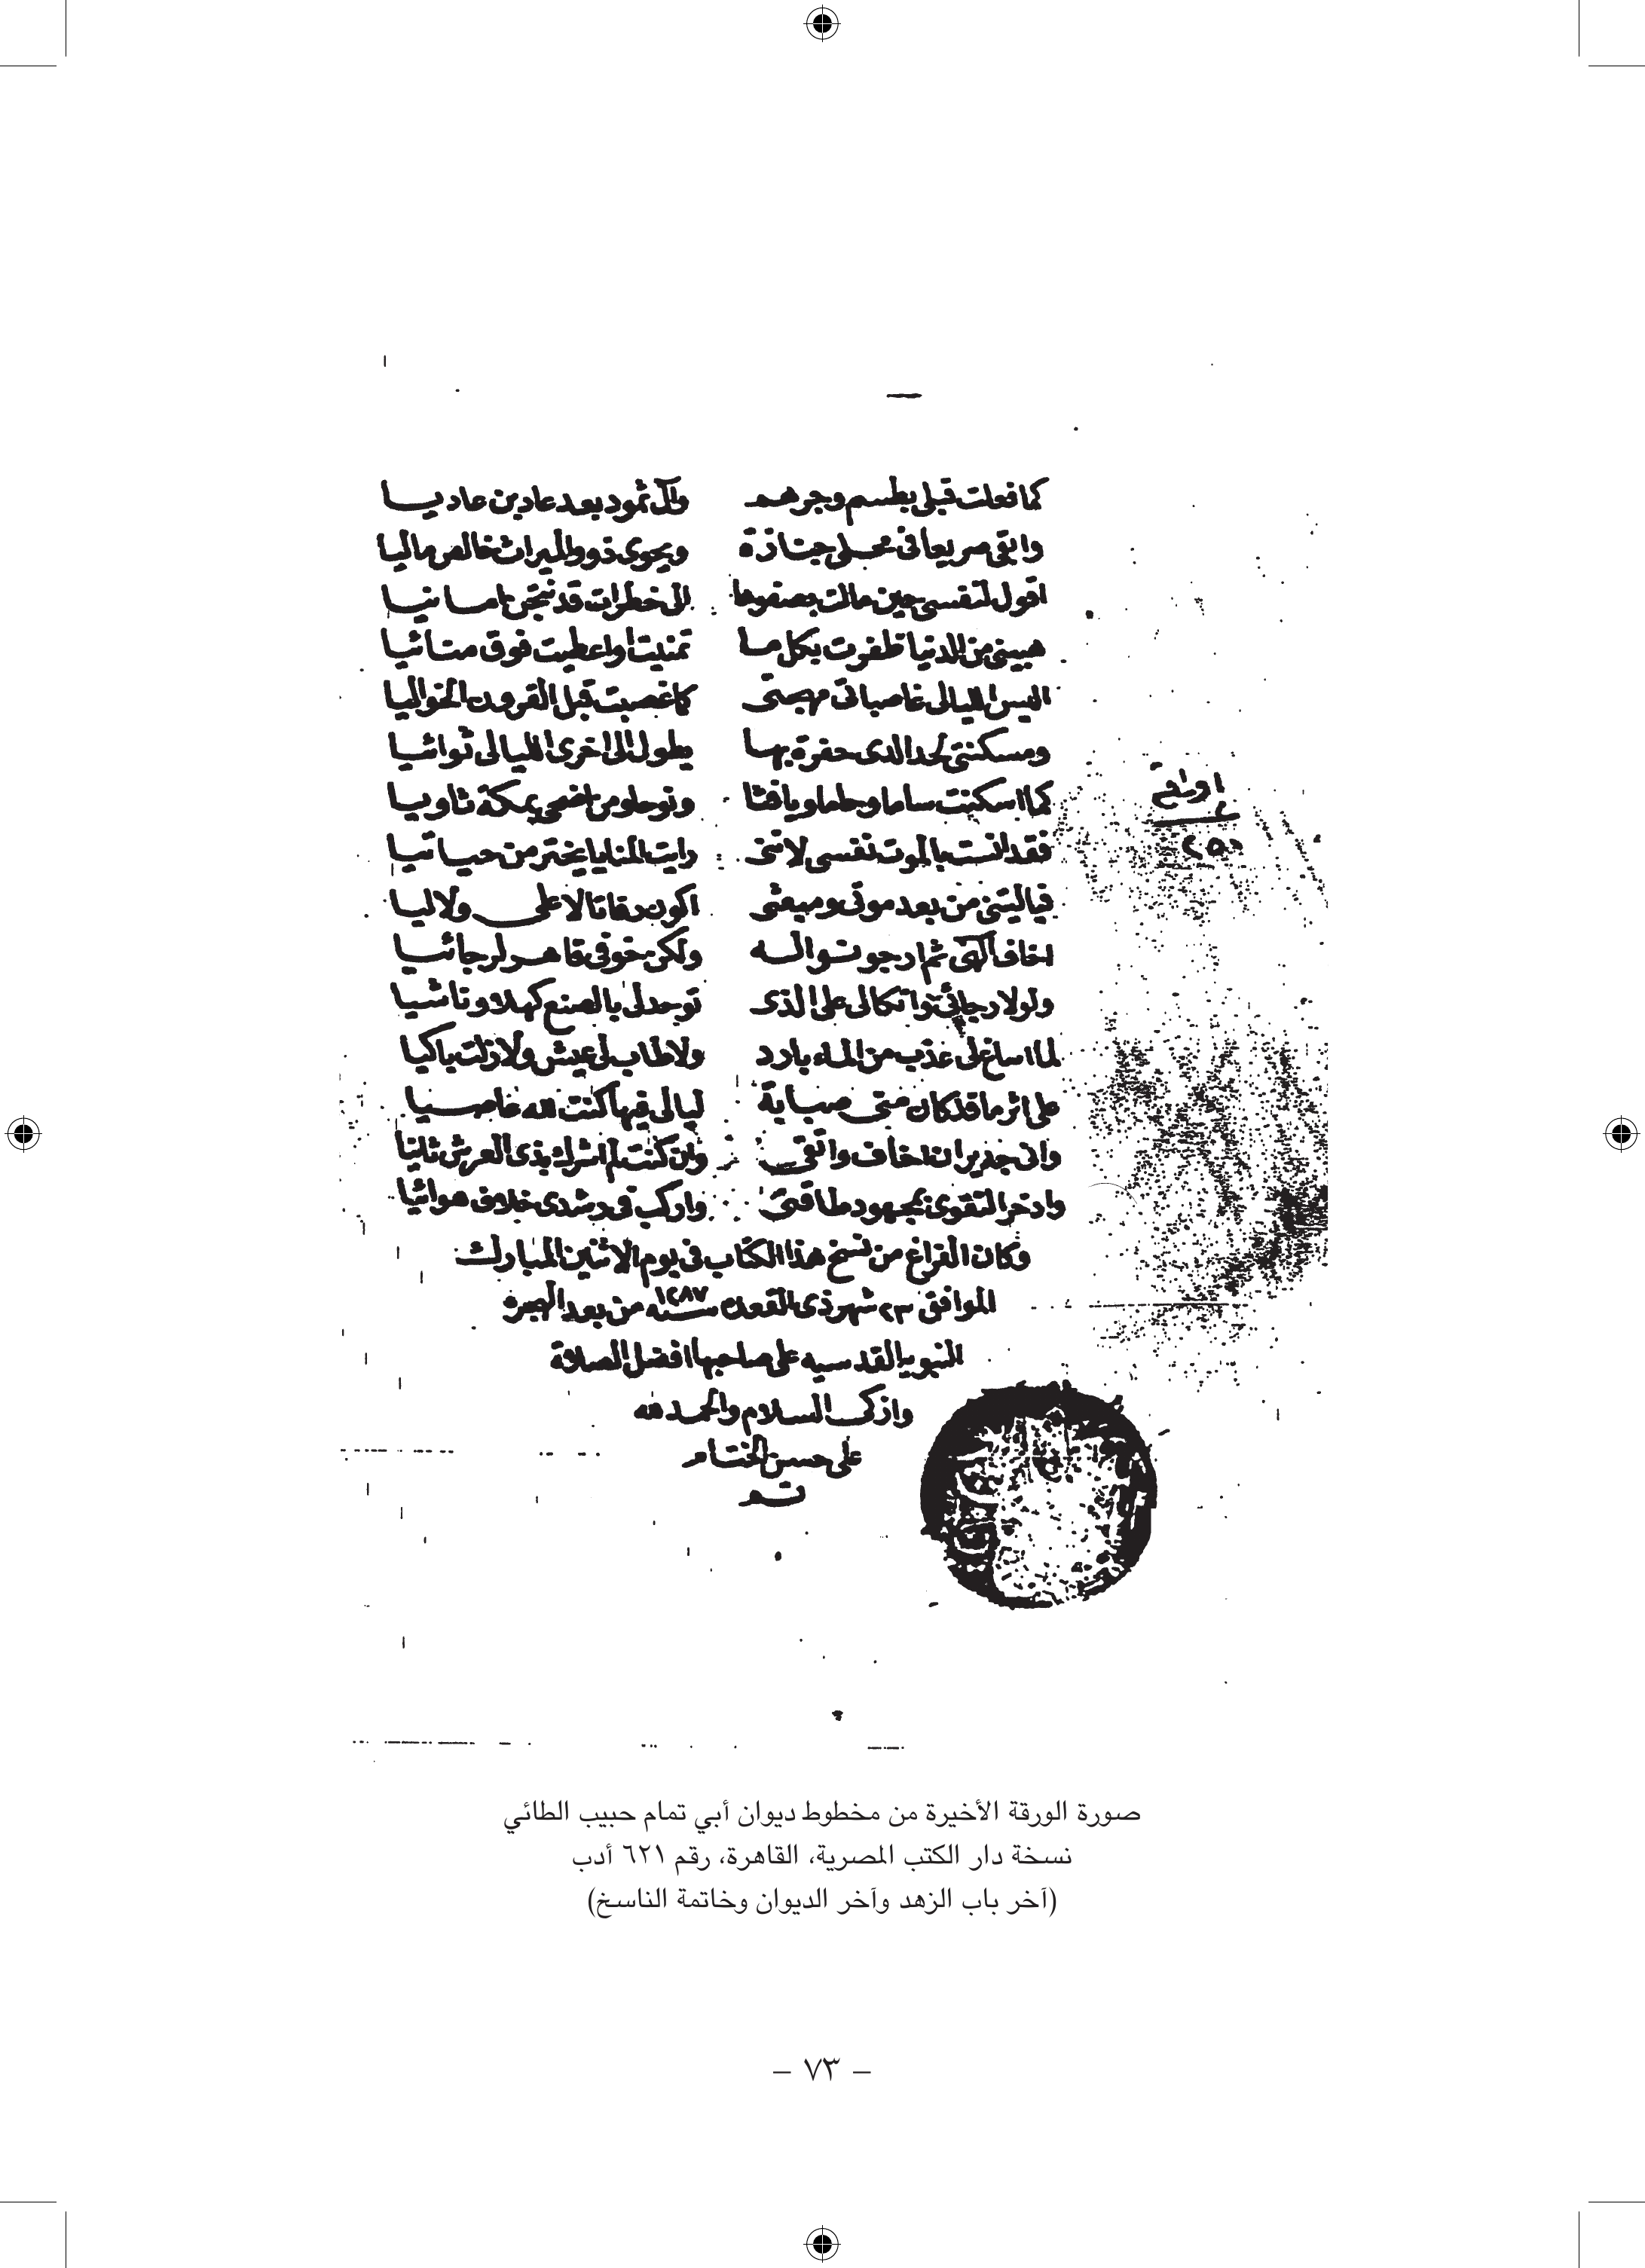 كما فعلت قبلى بطسم وجرهم وآل ثمود بعد عاد بن عاديا
وابقى صريعا فى محلى جنازة ويحوى ذوو الميراث خالص ماليا
اقول لنفسى حين مالت بصفوها الى خطرات قد نتجن امانيا
هبينى من الدنيا ظفرت بكل ما تمنيت او اعطيت فوق متانيا
اليس الليالى غاصباتى مهجتى كما غصبت قبل القرون الخواليا
ومسكنتى لحدا لدى حفرة بها يطول الى اخرى الليالى ثوائيا
كما اسكنت ساما وحاما ويافثا ونوحا ومن اضحى بمكة ثاويا
فقد انست بالموت نفسى لاننى رايت المنايا يخترمن حياتيا
فياليتنى من بعد موتى ومبعثى اكون رفاتا لا على ولا ليا
اخاف الهى ثم ارجو نواله ولكن خوفى قاهر لرجائيا
ولولا رجائى واتكالى على الذى توحد لى بالصنع كهلا وناشيا
لما ساغ لى عذب من الماء بارد ولا طاب لى عيش ولا زلت باكيا
على اثر ما قد كان منى صبابة ليالى فيها كنت لله عاصيا
وانى جدير ان اخاف واتقى وان كنت لم اشرك بذى العرش ثانيا
وادخر التقوى بمجهود طاقتى واركب فى رشدى خلاف هوائيا
وكان الفراغ من نسخ هذا الكتاب فى يوم الاثنين المبارك
الموافق ٢٣ شهر ذى القعده سنه ١٢٨٧ من بعد الهجره
النبويه القدسيه على صاحبها افضل الصلاة
وازكى السلام والحمد لله
على حسن الختام
تم
اوراق
صورة الورقة الأخيرة من مخطوط ديوان أبي تمام حبيب الطائي
نسخة دار الكتب المصرية، القاهرة، رقم ٦٢١ أدب
(آخر باب الزهد وآخر الديوان وخاتمة الناسخ)
– ٧٣ –